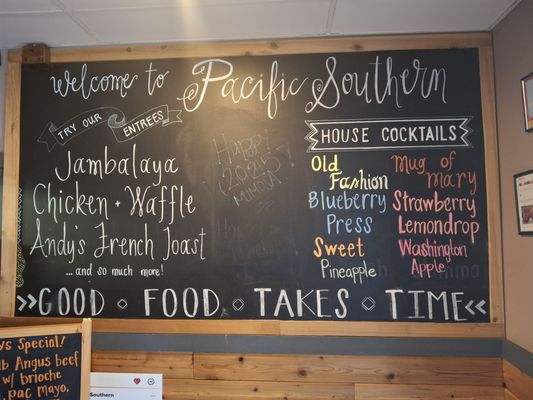 Welcome to Pacific Southern
TRY OUR ENTREES
Jambalaya
Chicken + Waffle
Andy's French Toast
...and so much more!
HOUSE COCKTAILS
Old Fashion
Blueberry Press
Sweet Pineapple
Mug of Mary
Strawberry Lemondrop
Washington Apple
>> GOOD ◇ FOOD ◇ TAKES ◇ TIME <<
Special!
Angus beef
w/ brioche
pac mayo,
Southern